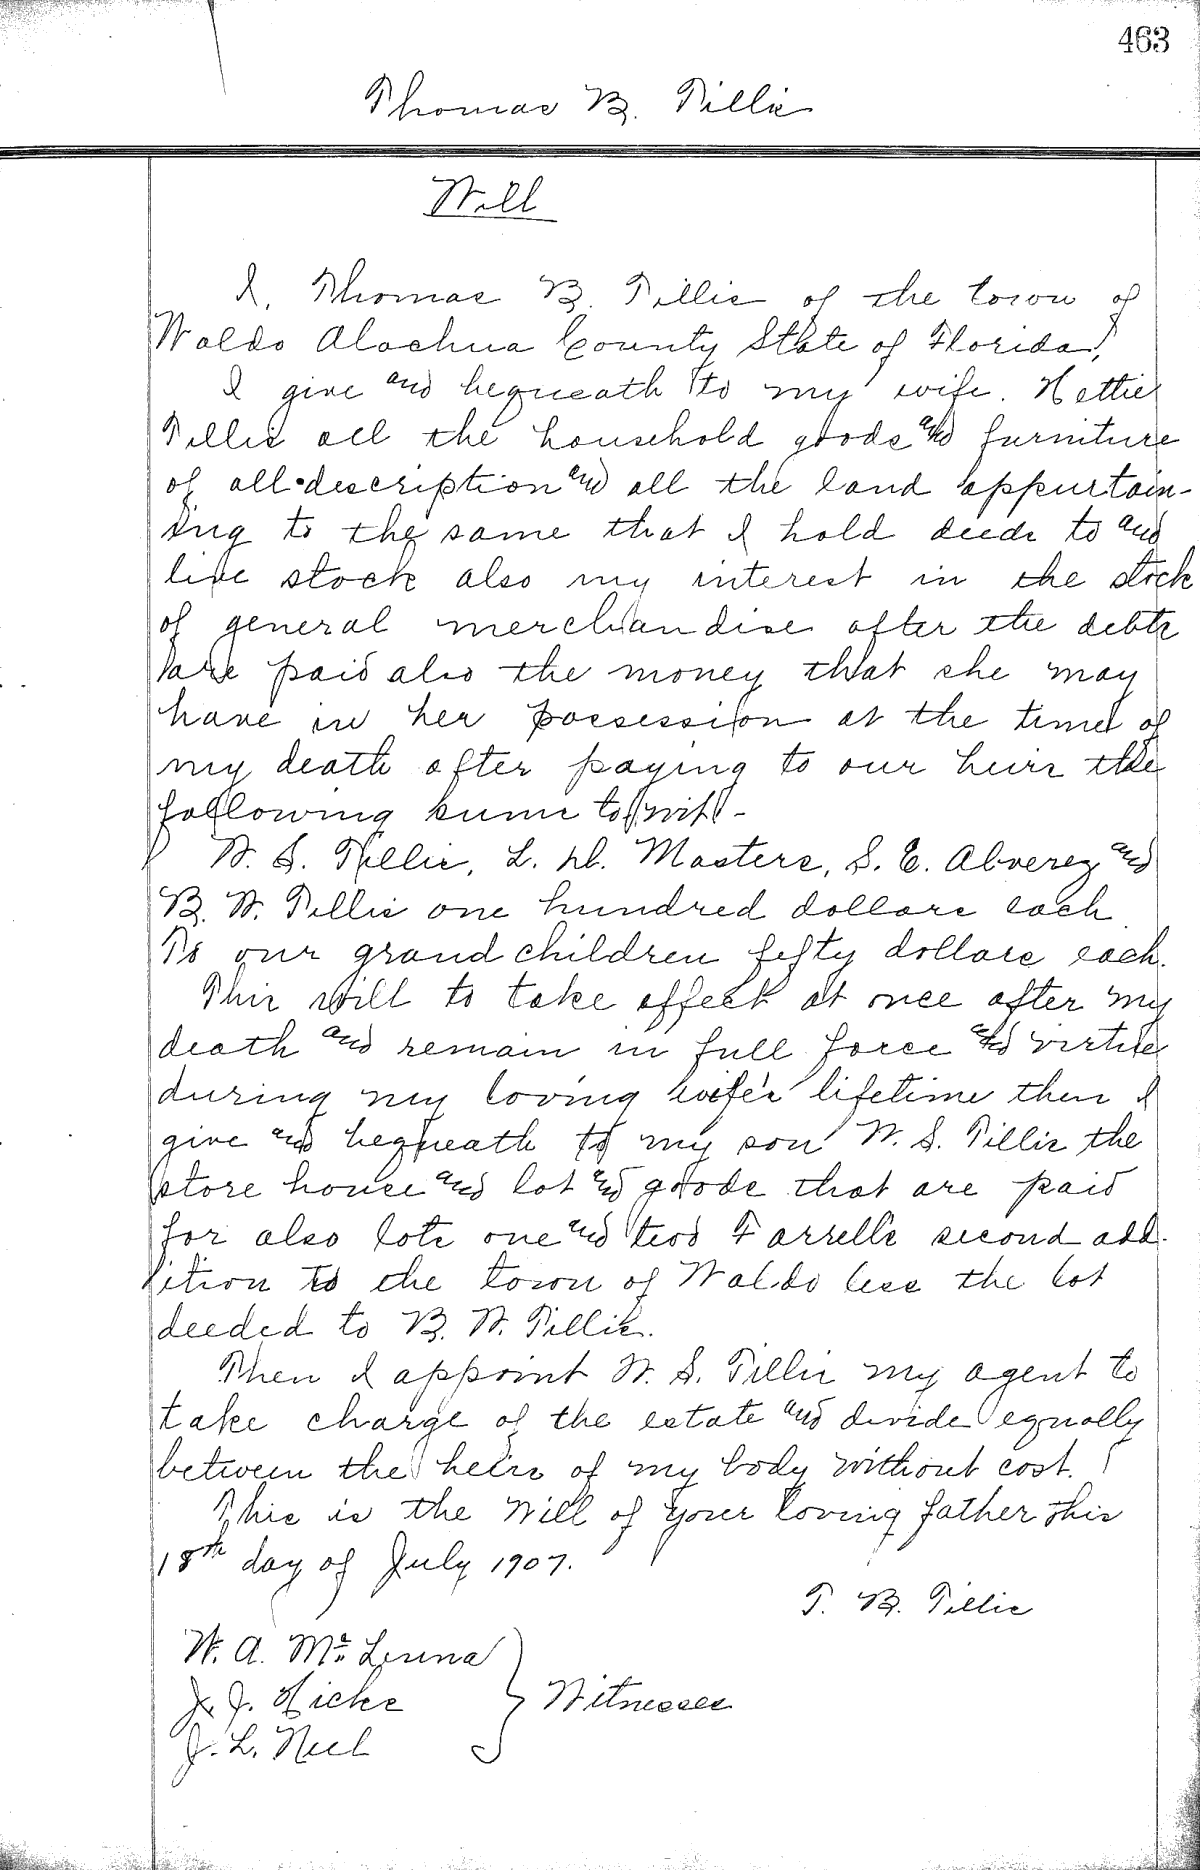 463
Thomas B. Tillis
Will
I, Thomas B. Tillis of the town of
Waldo Alachua County State of Florida,
I give and bequeath to my wife. Hettie
Tillis all the household goods and furniture
of all description and all the land appurtain-
ing to the same that I hold deeds to and
live stock also my interest in the stock
of general merchandise after the debts
are paid also the money that she may
have in her possession at the time of
my death after paying to our heirs the
following sums to wit -
W. S. Tillis, L. M. Masters, S. E. Alverez and
B. W. Tillis one hundred dollars each
To our grand children fifty dollars each.
This will to take affect at once after my
death and remain in full force and virtue
during my loving wife's lifetime then I
give and bequeath to my son W. S. Tillis the
store house and lot and goods that are paid
for also lots one and two Farrell's second add-
ition to the town of Waldo less the lot
deeded to B. W. Tillis.
Then I appoint W. S. Tillis my agent to
take charge of the estate and divide equally
between the heirs of my body without cost.
This is the Will of your loving father this
18th day of July 1907.
T. B. Tillis
W. A. Mc
J. J. Hicks } Witnesses
J. L. Neel